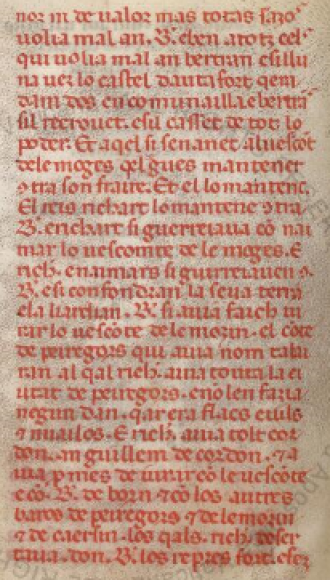 nor ni de ualor mas totas sazos
uolia mal an. B. eben a totz cels
qui uolia mal an bertran e silluna
uez lo castel dautafort qem
dam dos en comunailla ebertran
sil recrouet. e su casset de tot lo
poder. Et aqel si senanet al uescōt
de lemoges qel gues mantenet
ꝯtra son fraire. Et el lo mantenc.
El reis richart lo mantenc ꝯtra
B. e richart si guerreiaua cō nai
mar lo uescomte de lemoges. E
rich. en aimars si guirreiauen ꝯ.
B. e si confondian la seua terra
e la bardian. B. si auia faich iu
rar lo uescōte de lemozin. el cōte
de peiregors qui auia nom talai
ran al qal rich. auia touta la ci
utat de peiregors. e nō len faria
negun dan. qar era flacs e uils
⁊ nuallos. E rich. auia tolt cor
don. an guillem de cordon. ⁊ a
uia, p mes de iurar cō le uescōte
e cō. B. de born ⁊ cō los autres
baros de peiregors ⁊ de lemozi
⁊ de caersin. los qals. rich. deser
taua. don. B. los repres fort. e fez